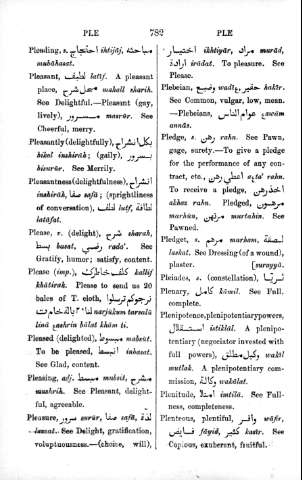 PLE 782 PLE
Pleading, s. احتجاج ihtijáj, مباحثه
mubáhasat.
Pleasant, لطيف latíf. A pleasant
place, محل شرح mahall sharih.
See Delightful.—Pleasant (gay,
lively), مسرور masrúr. See
Cheerful, merry.
Pleasantly (delightfully), بكل انشراح
bikol inshiráh; (gaily),
bisurúr. See Merrily.
Pleasantness (delightfulness), انشراح
inshiráh, صفا safá; (sprightliness
of conversation), لطف lutf, لطافة
latáfat.
Please, v. (delight), شرح sharah,
بسط basat, رضي See
Gratify, humor; satisfy, content.
Please (imp.), كلف خاطرك kallif
khátirak. Please to send us 20
bales of T. cloth, نرجوكم ترسلوا
لنا narjúkum tarsalú
lina ashrin bálat khám ti.
Pleased (delighted), مبسوط mabsút.
To be pleased, انبسط inbasat.
See Glad, content.
Pleasing, adj. مبسط mubsit, مشرح
mushrih. See Pleasant, delight-
ful, agreeable.
Pleasure, سرور surúr, صفا safá, لذة
lazzat. See Delight, gratification,
voluptuousness.—(choice, will),
اختيار ikhtiyár, مراد murád,
ارادة irádat. To pleasure. See
Please.
Plebeian, وضيع حقير hakír.
See Common, vulgar, low, mean.
—Plebeian, عوام الناس
annás.
Pledge, s. رهن rahn. See Pawn,
gage, surety.—To give a pledge
for the performance of any con-
tract, etc., اعطي رهن rahn.
To receive a pledge, اخذ رهن
akhas rahn. Pledged, مرهون
marhún, مرتهن murtahin. See
Pawned.
Pledget, s. مرهم marham, لصقة
laskat. See Dressing (of a wound),
plaster. [surayyá.
Pleiades, s. (constellation), ثريا
Plenary, كامل kámil. See Full,
complete.
Plenipotence, plenipotentiary powers,
استقلال istiklál. A plenipo-
tentiary (negociator invested with
full powers), وكيل مطلق wakíl
mutlak. A plenipotentiary com-
mission, وكالة wakálat.
Plenitude, امتلا imtilá. See Full-
ness, completeness.
Plenteous, plentiful, وافر wáfir,
فايض fáyid, كثير kasír. See
Copious, exuberant, fruitful.